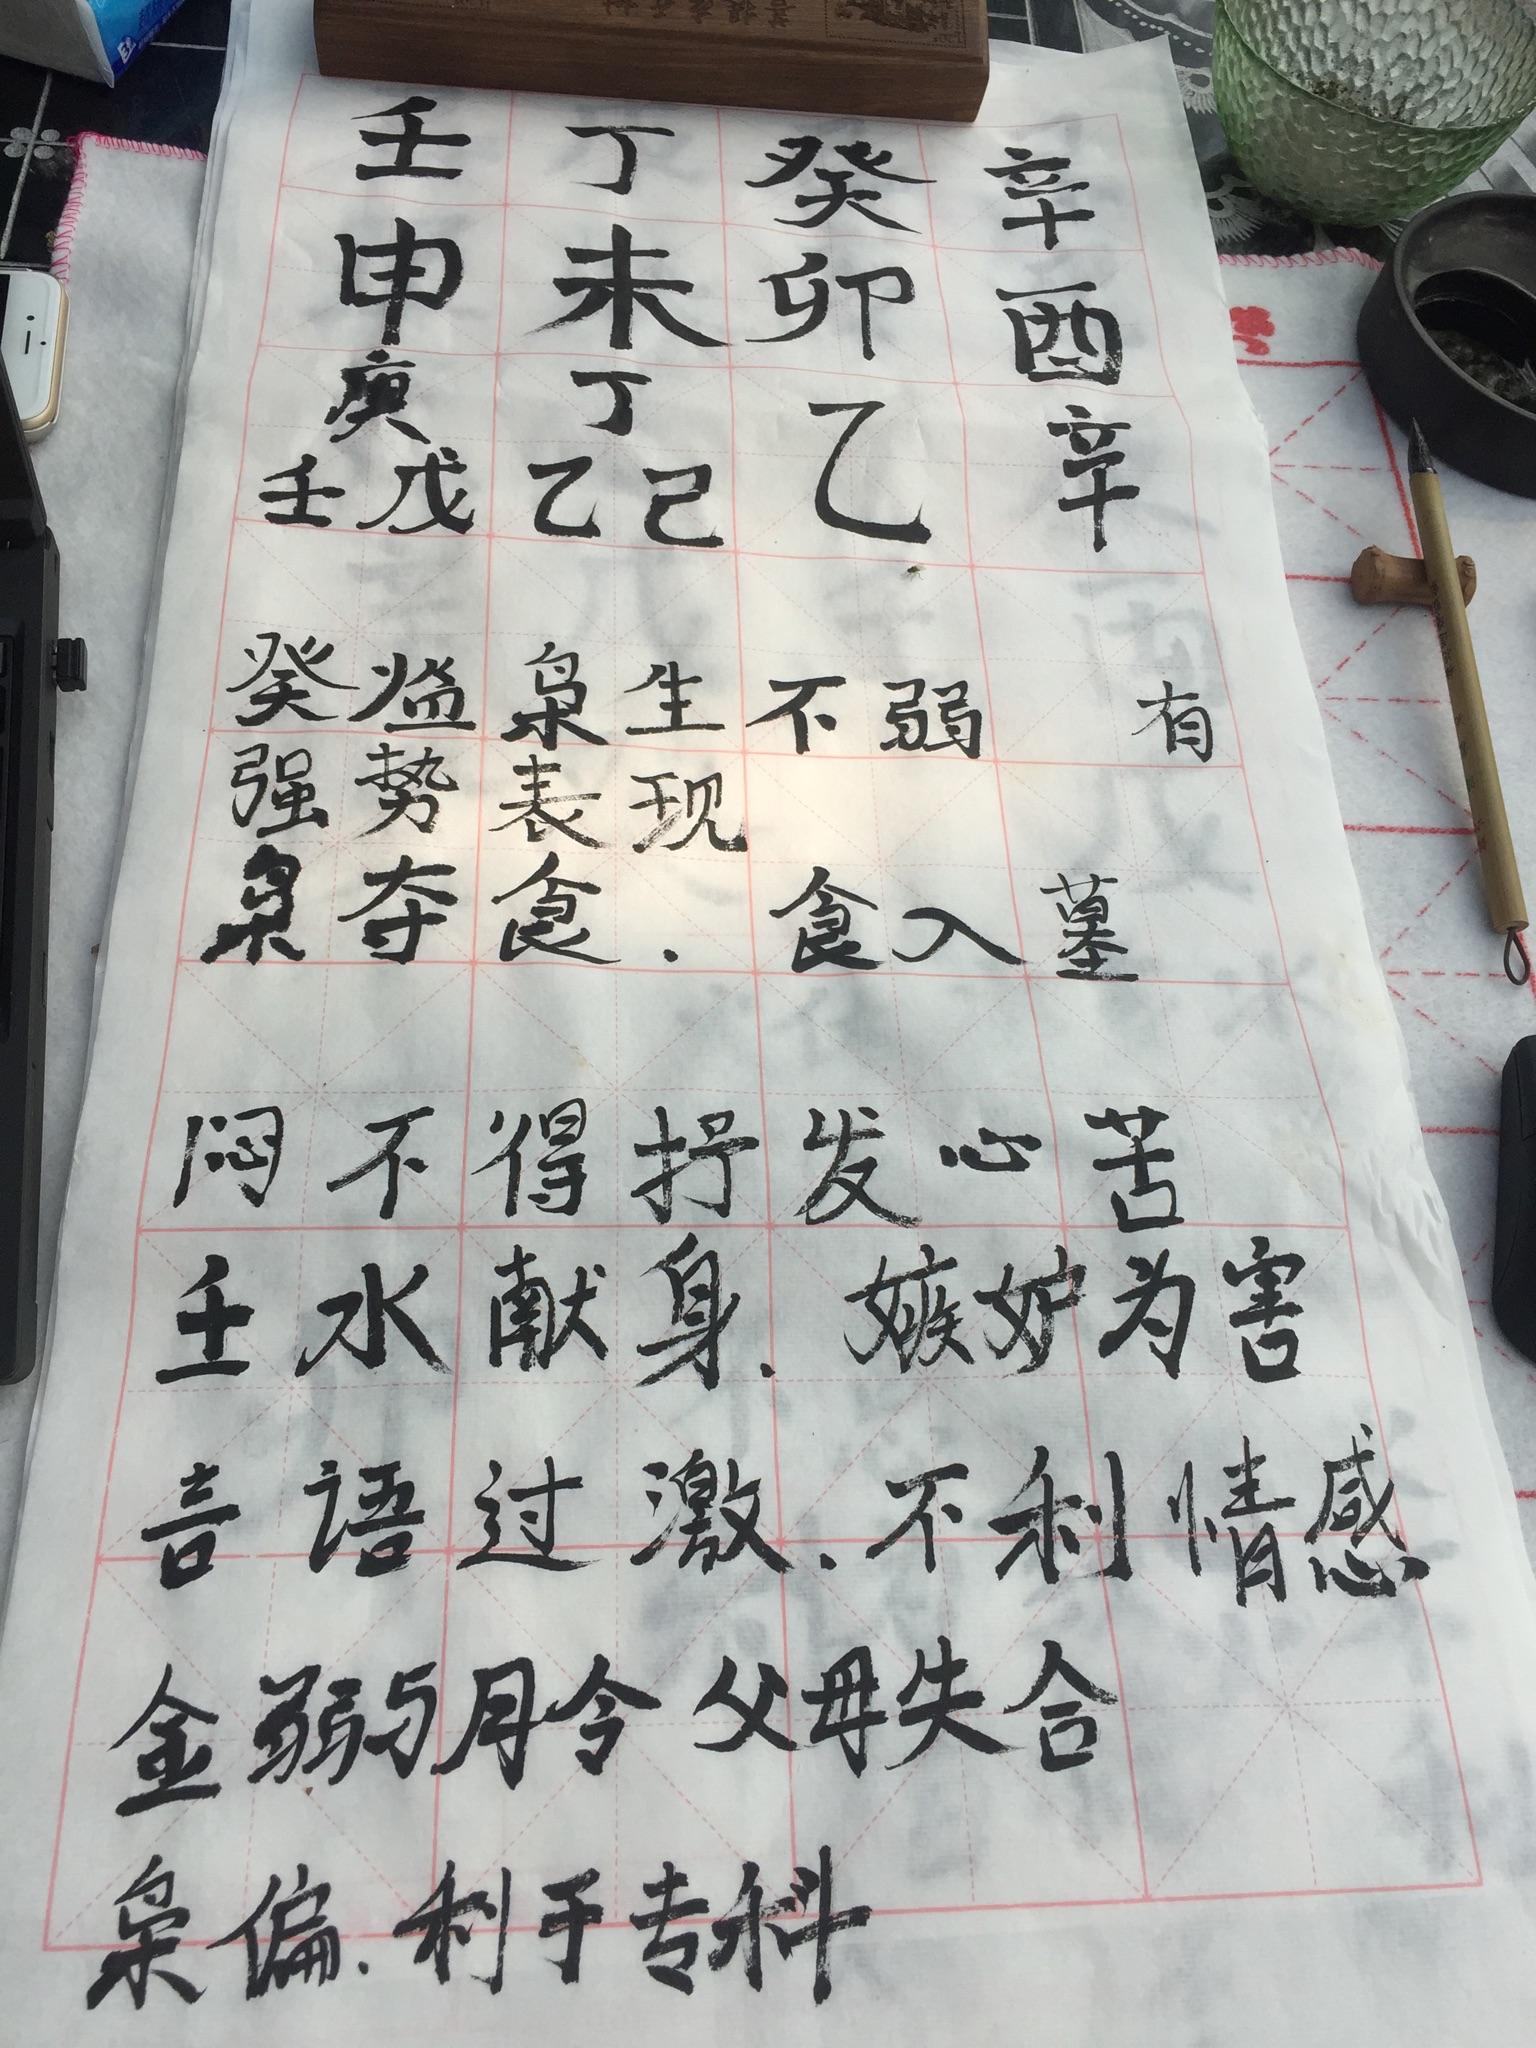 壬 丁 癸 辛
申 未 卯 酉
庚 丁 乙 辛
壬戊 乙己
癸 枭生不弱 有
强势表现
枭夺食. 食入墓
闷不得抒发心苦
壬水献身. 嫉妒为害
言语过激. 不利情感
金弱与月令 父母失合
枭偏. 利于专科